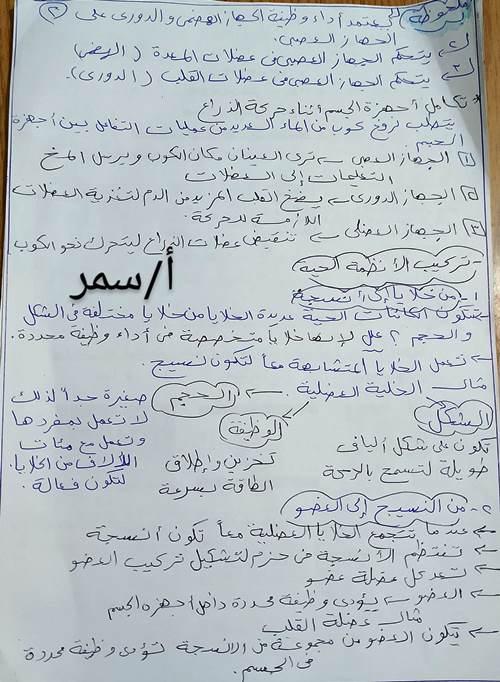 ملحوظة يعتمد أداء وظيفة الجهاز الهضمى والدورى على ②
الجهاز العصبى.
يتحكم الجهاز العصبى فى عضلات المعدة (الهضمى)
يتحكم الجهاز العصبى فى عضلات القلب (الدورى).
* تكامل أجهزة الجسم أثناء حركة الذراع
يتطلب رفع كوب من الماء العديد من عمليات التفاعل بين أجهزة
الجسم
① الجهاز العصبى ← ترى العينان مكان الكوب ويرسل المخ
التعليمات إلى العضلات
② الجهاز الدورى ← يضخ القلب المزيد من الدم لتغذية العضلات
اللازمة للحركة.
③ الجهاز العضلى ← تنقبض عضلات الذراع ليتحرك نحو الكوب
أ/سمر
- تركيب الأنظمة الحية
١- من خلايا إلى أنسجة
- تتكون الكائنات الحية عديدة الخلايا من خلايا مختلفة فى الشكل
والحجم ؟ علل لإنها خلايا متخصصة فى أداء وظيفة محددة.
← تعمل الخلايا المتشابهة معاً لتكون نسيج.
مثال الخلية العضلية. ← الحجم
صغيرة جداً لذلك
لا تعمل بمفردها
وتعمل مع مئات
الآلاف من الخلايا.
لتكون فعالة.
الشكل
تكون على شكل ألياف
طويلة لتسمح بالحركة
الوظيفة
تخزين وإطلاق
الطاقة بسرعة
٢- من النسيج إلى العضو
← عندما تتجمع الخلايا العضلية معاً تكون أنسجة
← تنتظم الأنسجة فى حزم لتشكيل تركيب العضو
← تعد كل عضلة عضو
← العضو ← يؤدى وظيفة محددة داخل أجهزة الجسم
مثال عضلة القلب
← يتكون العضو من مجموعة من الأنسجة لتؤدى وظيفة محددة
فى الجسم.